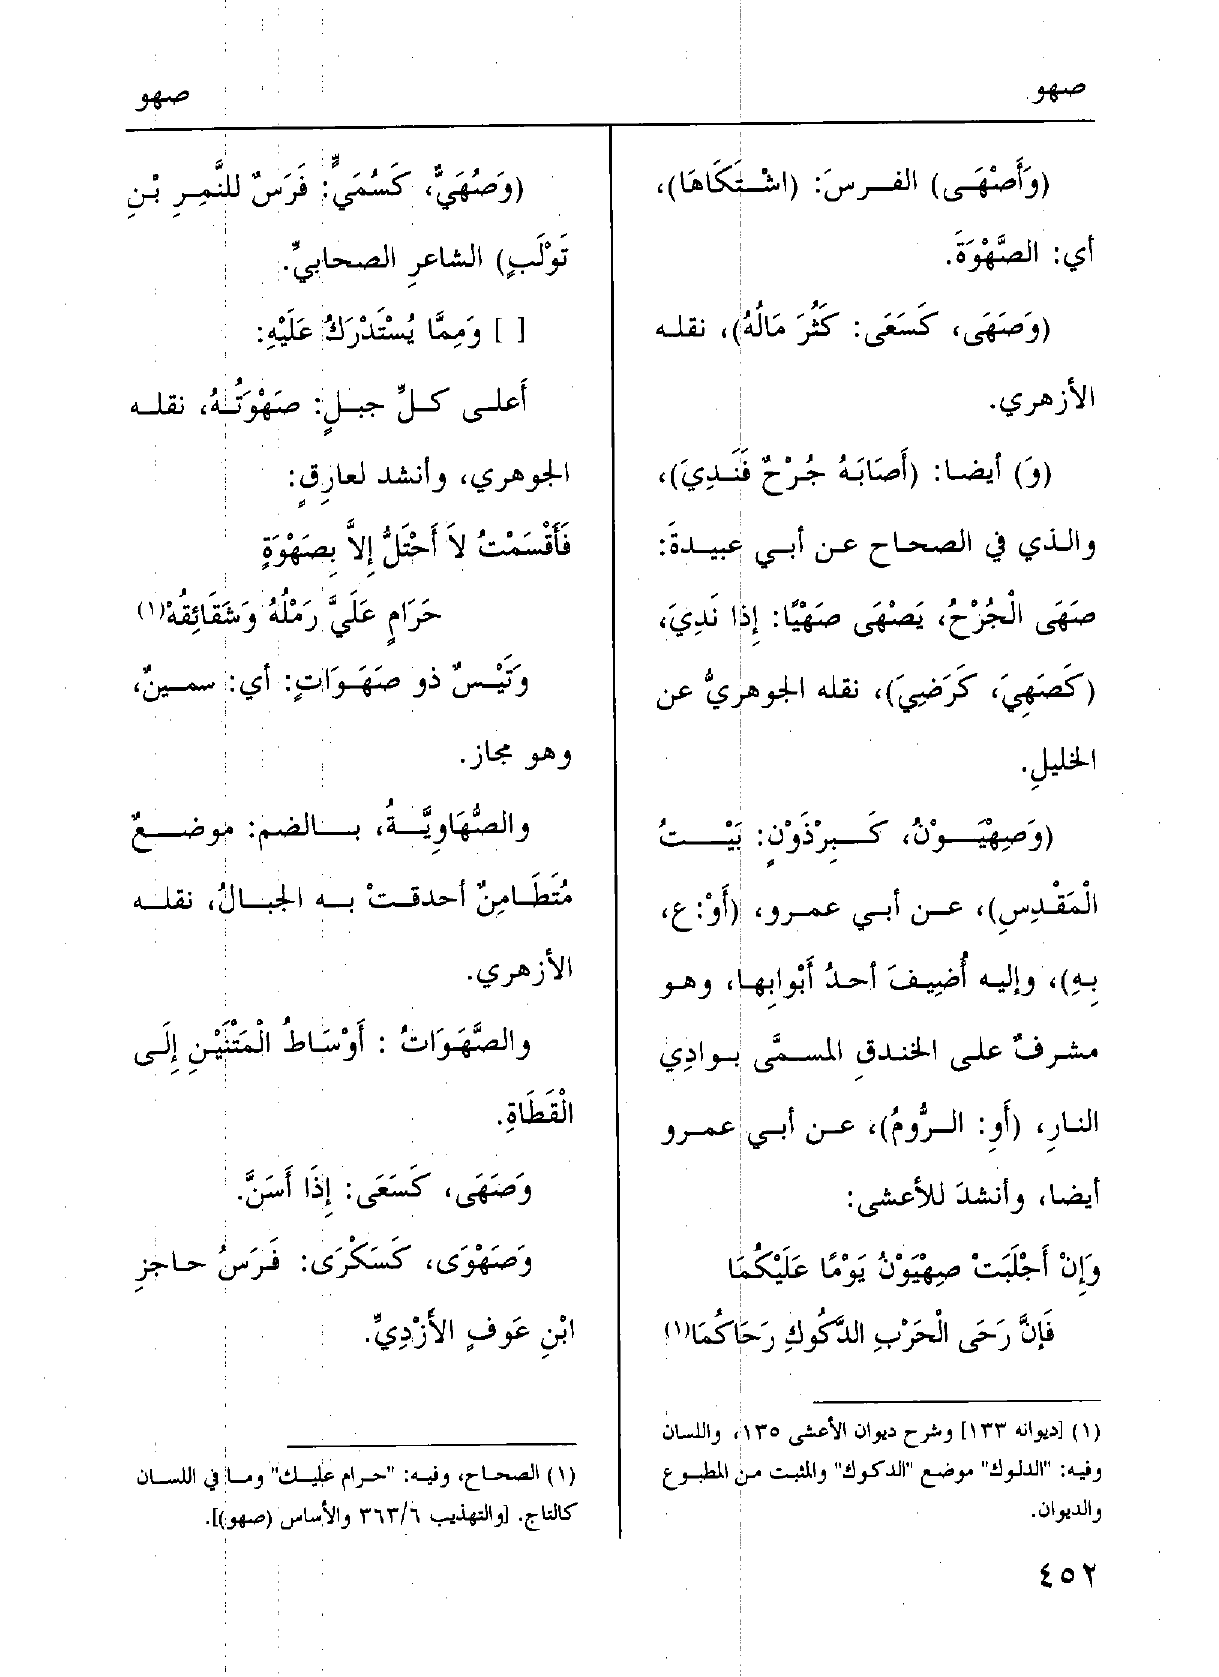 صهو
صهو
(وَأَصْهَى) الفرسَ: (اشْتَكَاهَا)،
أي: الصَّهْوَةَ.
(وَصَهَى، كَسَعَى: كَثُرَ مَالُهُ)، نقله
الأزهري.
(وَ) أيضا: (أَصَابَهُ جُرْحٌ فَنَدِيَ)،
والذي في الصحاح عن أبي عبيدةَ:
صَهَى الْجُرْحُ، يَصْهَى صَهْيًا: إِذا نَدِيَ،
(كَصَهِيَ، كَرَضِيَ)، نقله الجوهريُّ عن
الخليلِ.
(وَصِهْيَوْنُ، كَبِرْذَوْنٍ: بَيْتُ
الْمَقْدِسِ)، عن أبي عمرو، (أَوْ: ع،
بِهِ)، وإليه أُضِيفَ أحدُ أَبْوابِها، وهو
مشرفٌ على الخندقِ المسمَّى بوادِي
النارِ، (أَوِ: الرُّومُ)، عن أبي عمرو
أيضا، وأنشدَ للأعشى:
وَإِنْ أَجْلَبَتْ صِهْيَوْنُ يَوْمًا عَلَيْكُمَا
فَإِنَّ رَحَى الْحَرْبِ الدَّكُوكِ رَحَاكُمَا(١)
(١) [ديوانه ١٣٣] وشرح ديوان الأعشى ١٣٥، واللسان
وفيه: "الدلوك" موضع "الدكوك" والمثبت من المطبوع
والديوان.
(وَصُهَيٌّ، كَسُمَيٍّ: فَرَسٌ للنَّمِرِ بْنِ
تَوْلَبٍ) الشاعرِ الصحابيِّ.
[ ] وَمِمَّا يُسْتَدْرَكُ عَلَيْهِ:
أَعلى كلِّ جبلٍ: صَهْوَتُهُ، نقله
الجوهري، وأنشد لعارِقٍ:
فَأَقْسَمْتُ لاَ أَحْتَلُّ إِلاَّ بِصَهْوَةٍ
حَرَامٍ عَلَيَّ رَمْلُهُ وَشَقَائِقُهْ(١)
وَتَيْسٌ ذو صَهَوَاتٍ: أي: سمينٌ،
وهو مجاز.
والصُّهَاوِيَّةُ، بالضم: موضعٌ
مُتَطَامِنٌ أحدقتْ به الجبالُ، نقله
الأزهري.
والصَّهَوَاتُ : أَوْسَاطُ الْمَتْنَيْنِ إِلَى
الْقَطَاةِ.
وَصَهَى، كَسَعَى: إِذَا أَسَنَّ.
وَصَهْوَى، كَسَكْرَى: فَرَسُ حاجزِ
ابْنِ عَوفٍ الأَزْدِيِّ.
(١) الصحاح، وفيه: "حرام عليك" وما في اللسان
كالتاج. [والتهذيب ٣٦٣/٦ والأساس (صهو)].
٤٥٢